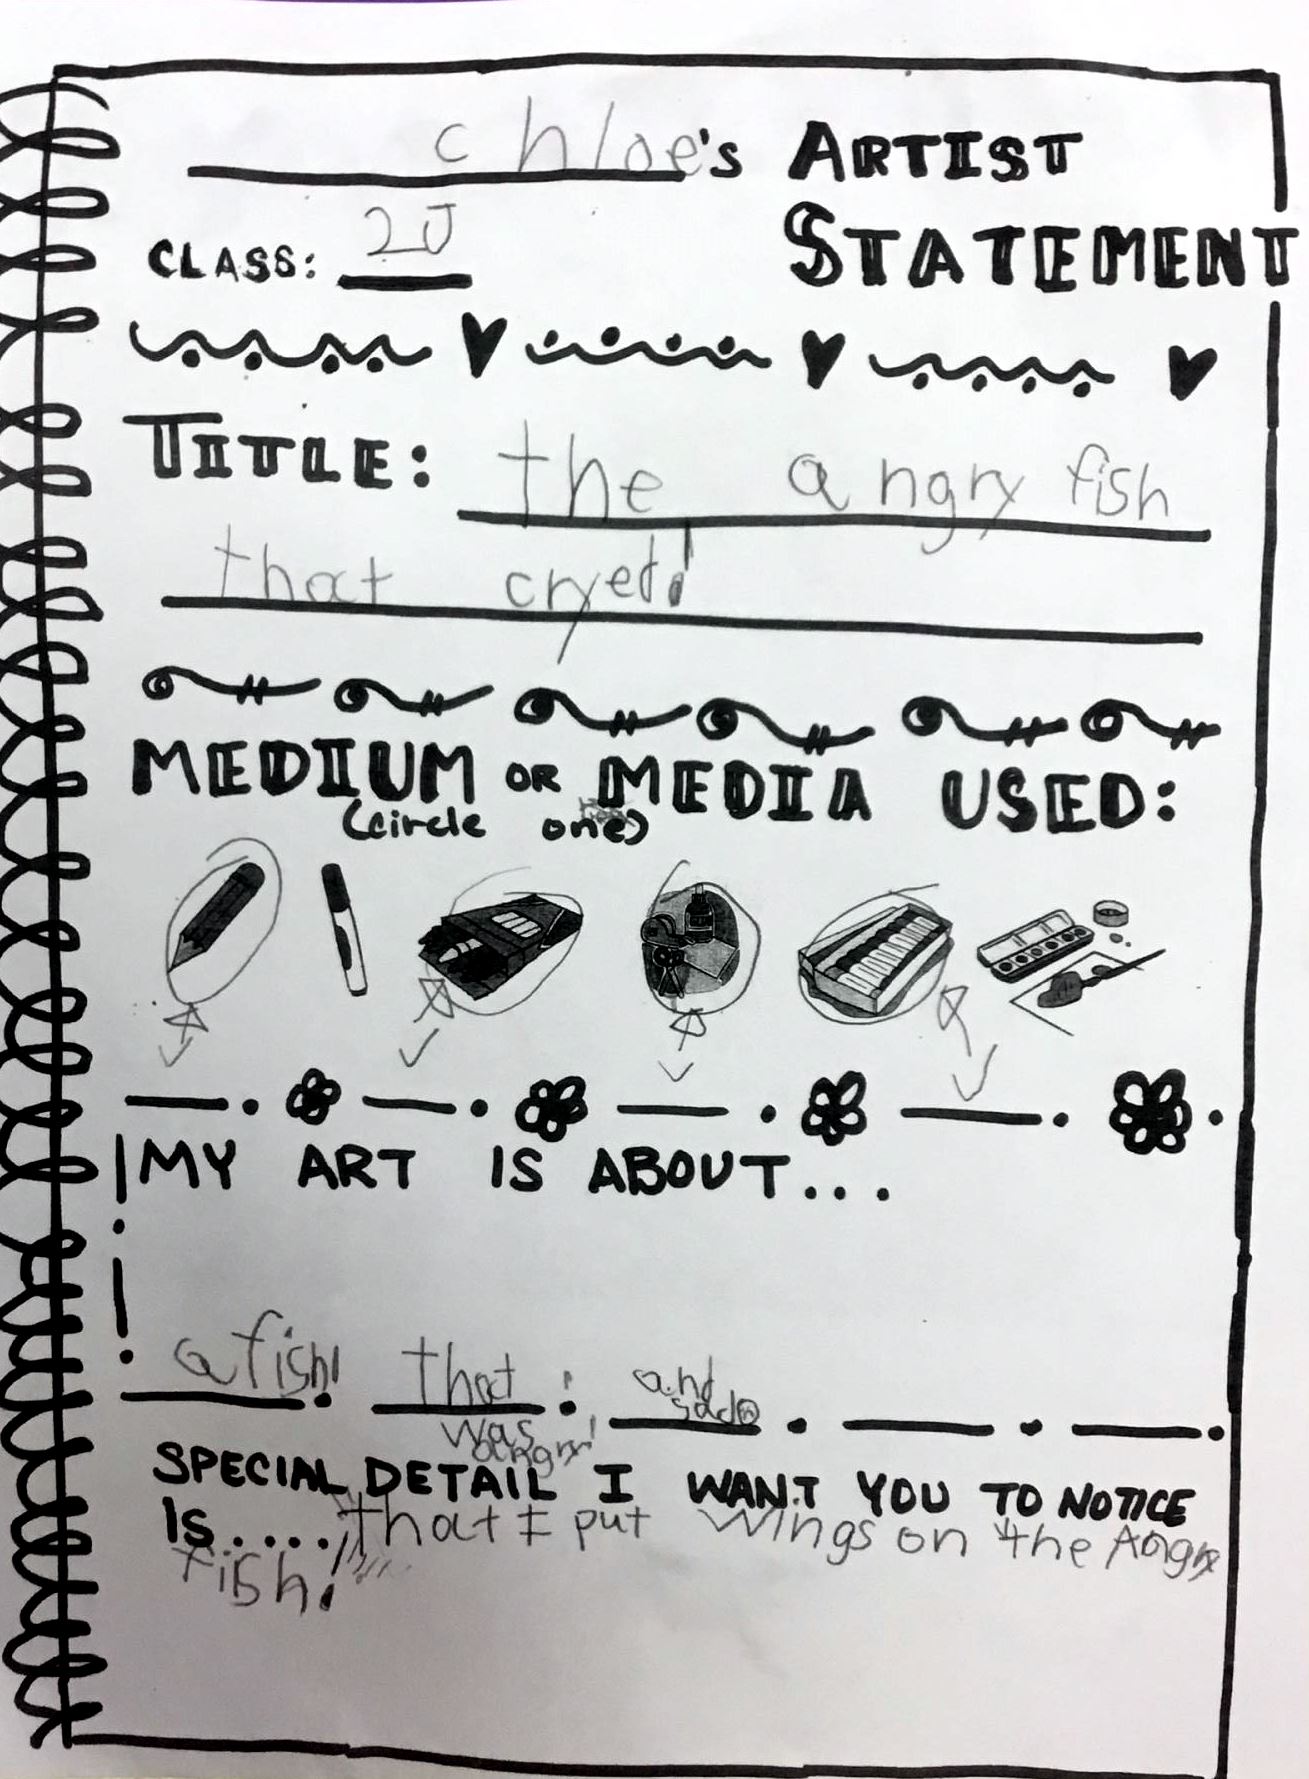 chloe's ARTIST
STATEMENT
CLASS: 2J
TITLE: the angry fish
that cryed!
MEDIUM OR MEDIA USED:
(circle one)
MY ART IS ABOUT...
a fish! that and
sad
was
angry!
SPECIAL DETAIL I WANT YOU TO NOTICE
IS.... that I put wings on the Angry
fish!